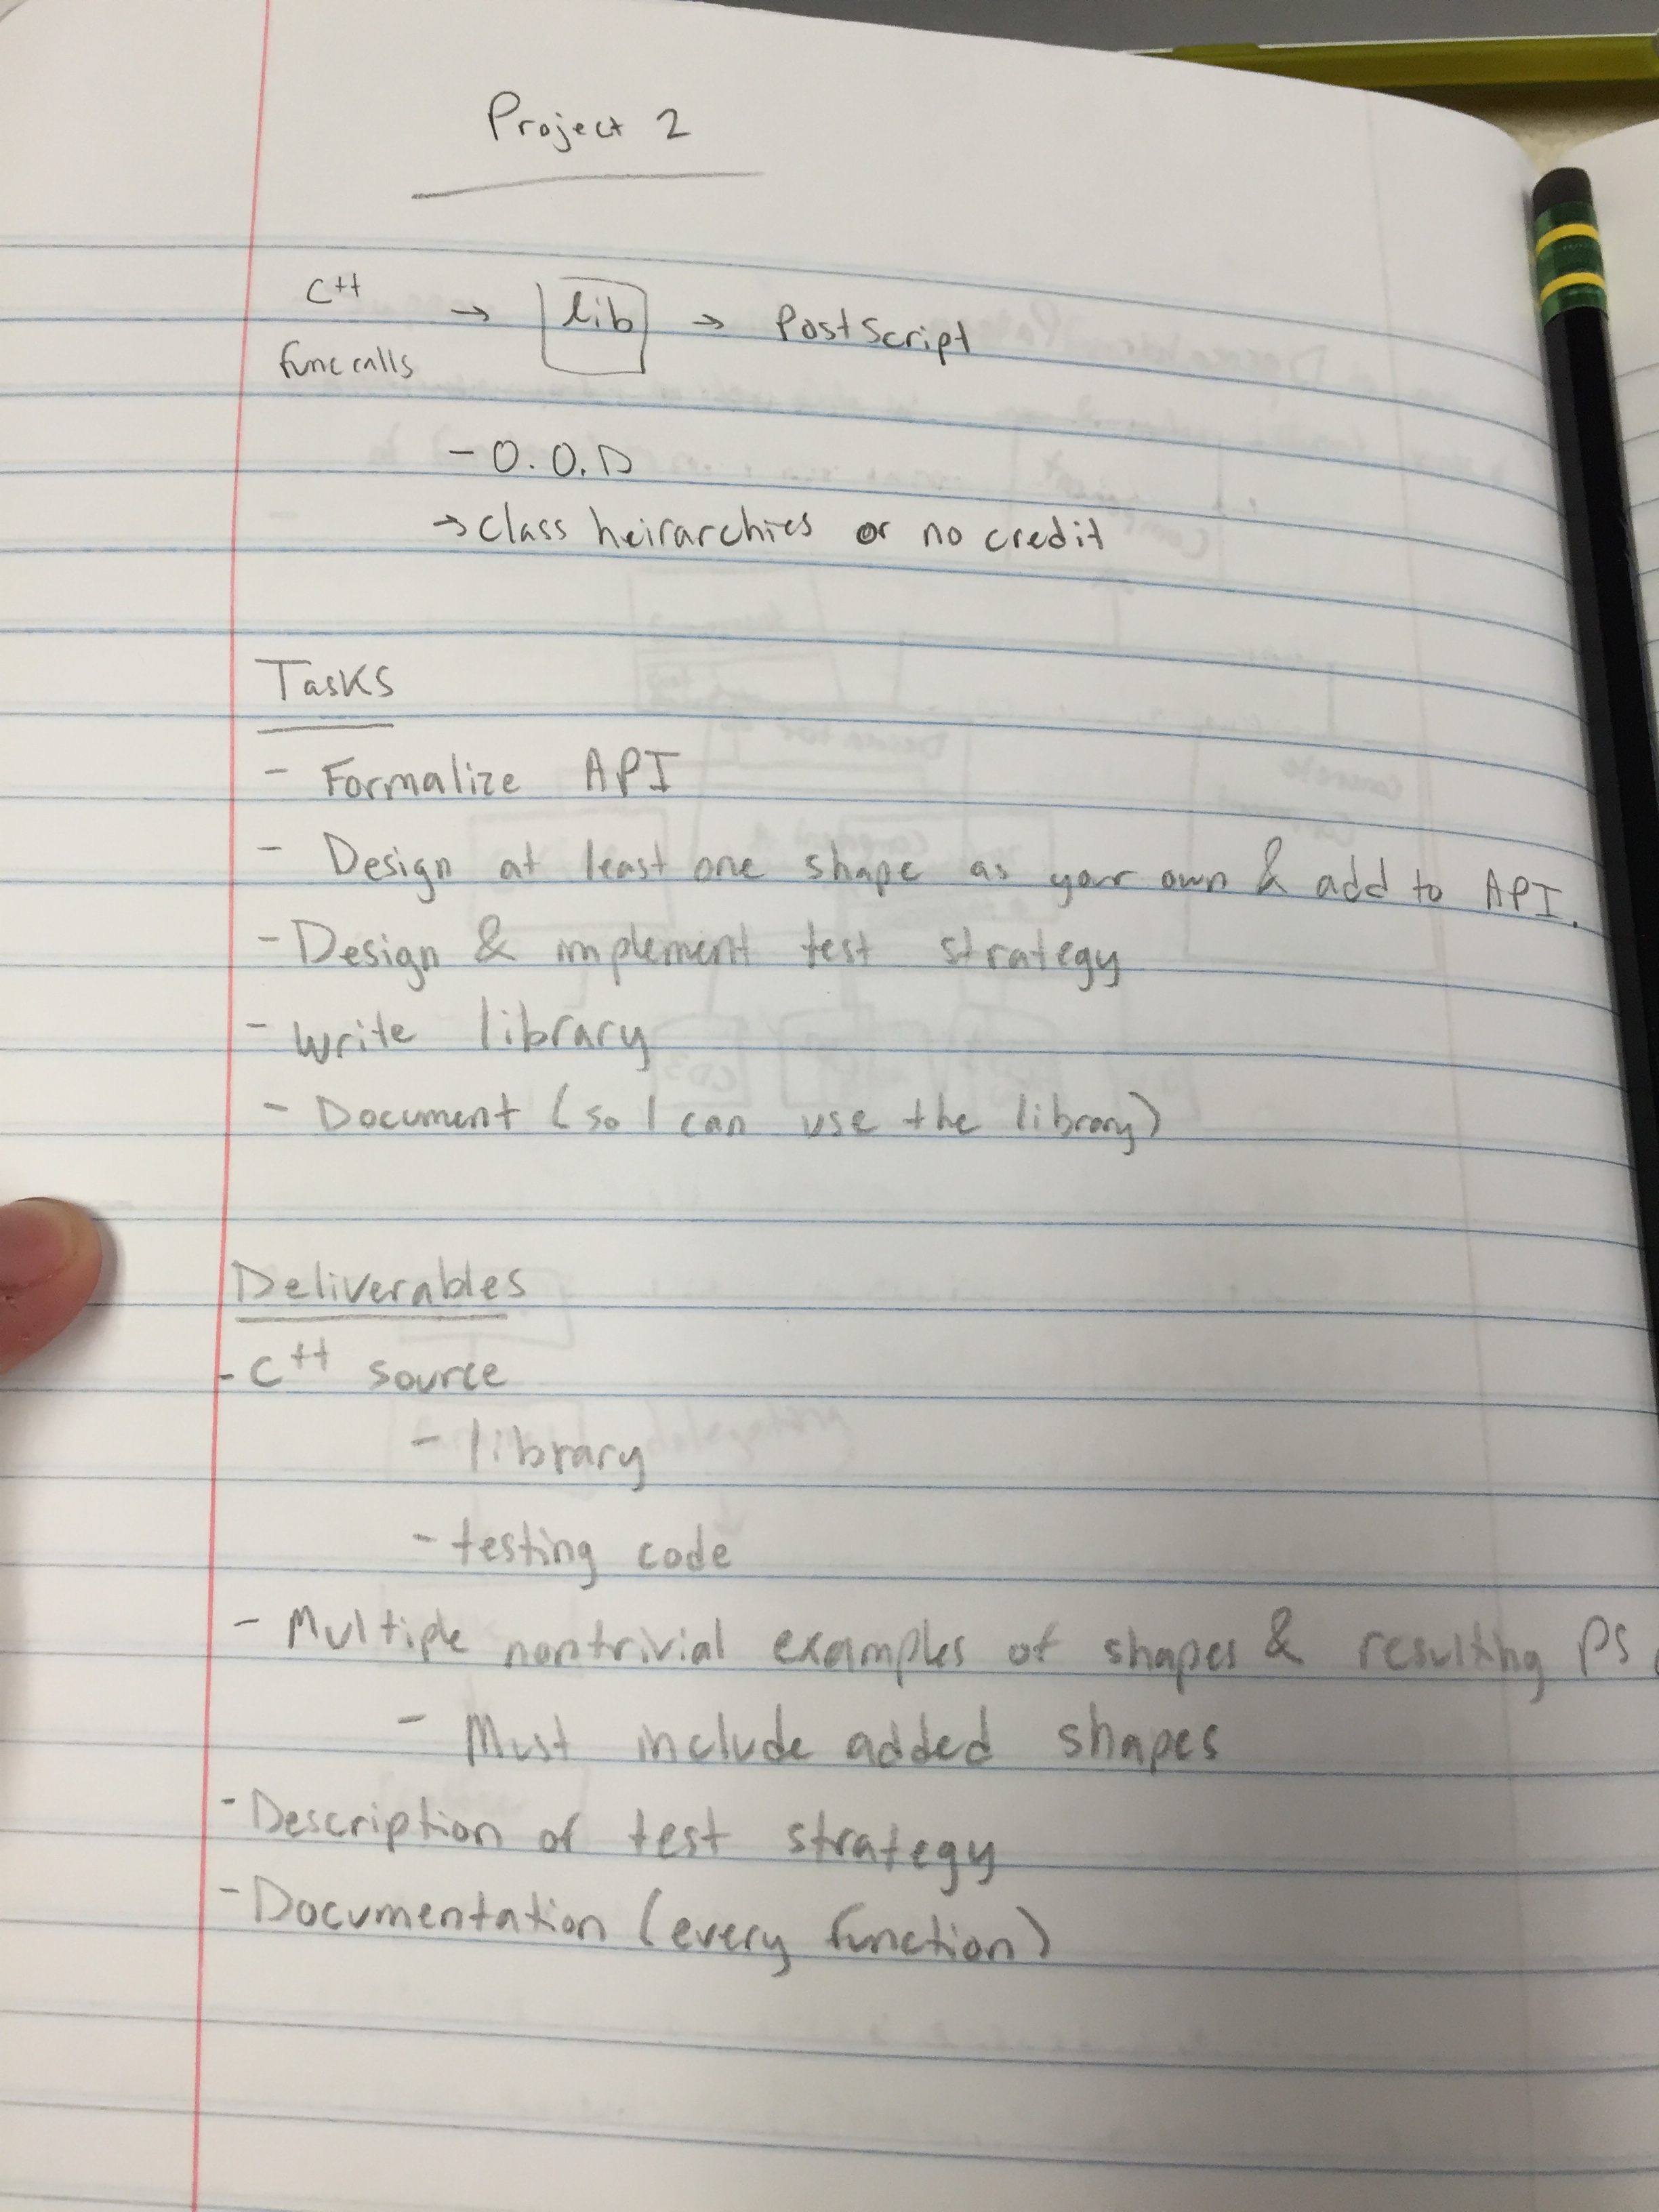 Project 2
C++
func calls
→ lib → PostScript
- O.O.D
→ class heirarchies or no credit
Tasks
- Formalize API
- Design at least one shape as your own & add to API.
- Design & implement test strategy
- Write library
- Document (so I can use the library)
Deliverables
- C++ source
- library
- testing code
- Multiple nontrivial examples of shapes & resulting PS
- Must include added shapes
- Description of test strategy
- Documentation (every function)